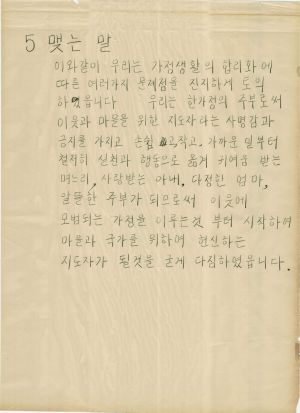 5 맺는 말
이와같이 우리는 가정생활의 합리화에
따른 여러가지 문제점을 진지하게 토의
하였읍니다 우리는 한가정의 주부로써
이웃과 마을을 위한 지도자라는 사명감과
긍지를 가지고 손쉽고, 작고, 가까운 일부터
철저히 실천과 행동으로 옮겨 귀여움 받는
며느리, 사랑받는 아내, 다정한 엄마,
알뜰한 주부가 되므로써 이웃에
모범되는 가정을 이루는것 부터 시작하여
마을과 국가를 위하여 헌신하는
지도자가 될것을 굳게 다짐하였읍니다.